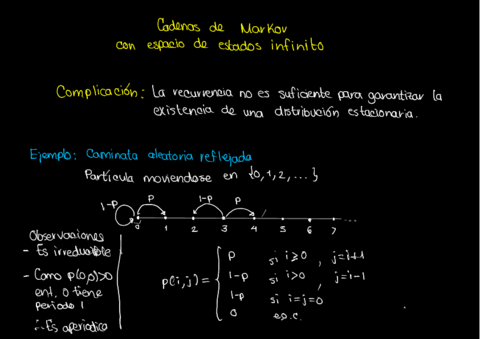 Cadenas de Markov
con espacio de estados infinito
Complicación: La recurriencia no es suficiente para garantizar la
existencia de una distribución estacionaria.
Ejemplo: Caminata aleatoria reflejada
Partícula moviendose en {0, 1, 2, ...}
1-p p 1-p p
0 1 2 3 4 5 6 7 ...
Observaciones
- Es irreducible
- Como p(0,0)>0
ent. 0 tiene
periodo 1
∴ Es aperiodica
p(i,j) =
p si i≥0, j=i+1
1-p si i>0, j=i-1
1-p si i=j=0
0 e.o.c.